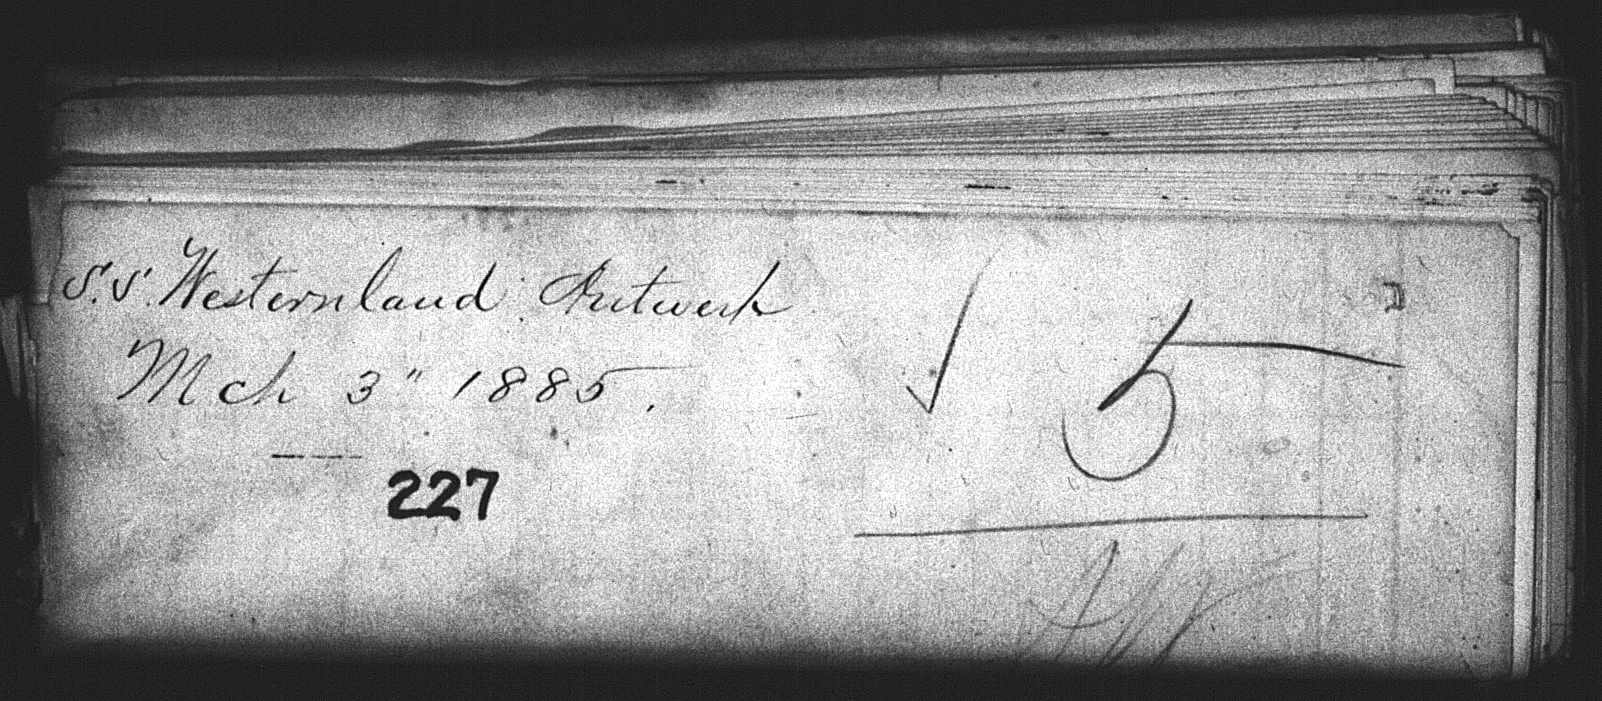 S.S. Westernland Antwerp
Mch 3" 1885.
227
5